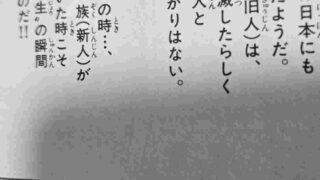 日本にも
だようだ。
旧人）は、
滅したらしく
人と
かりはない。
の時…、
族（新人）が
いた時こそ
生”の瞬間
のだ!!